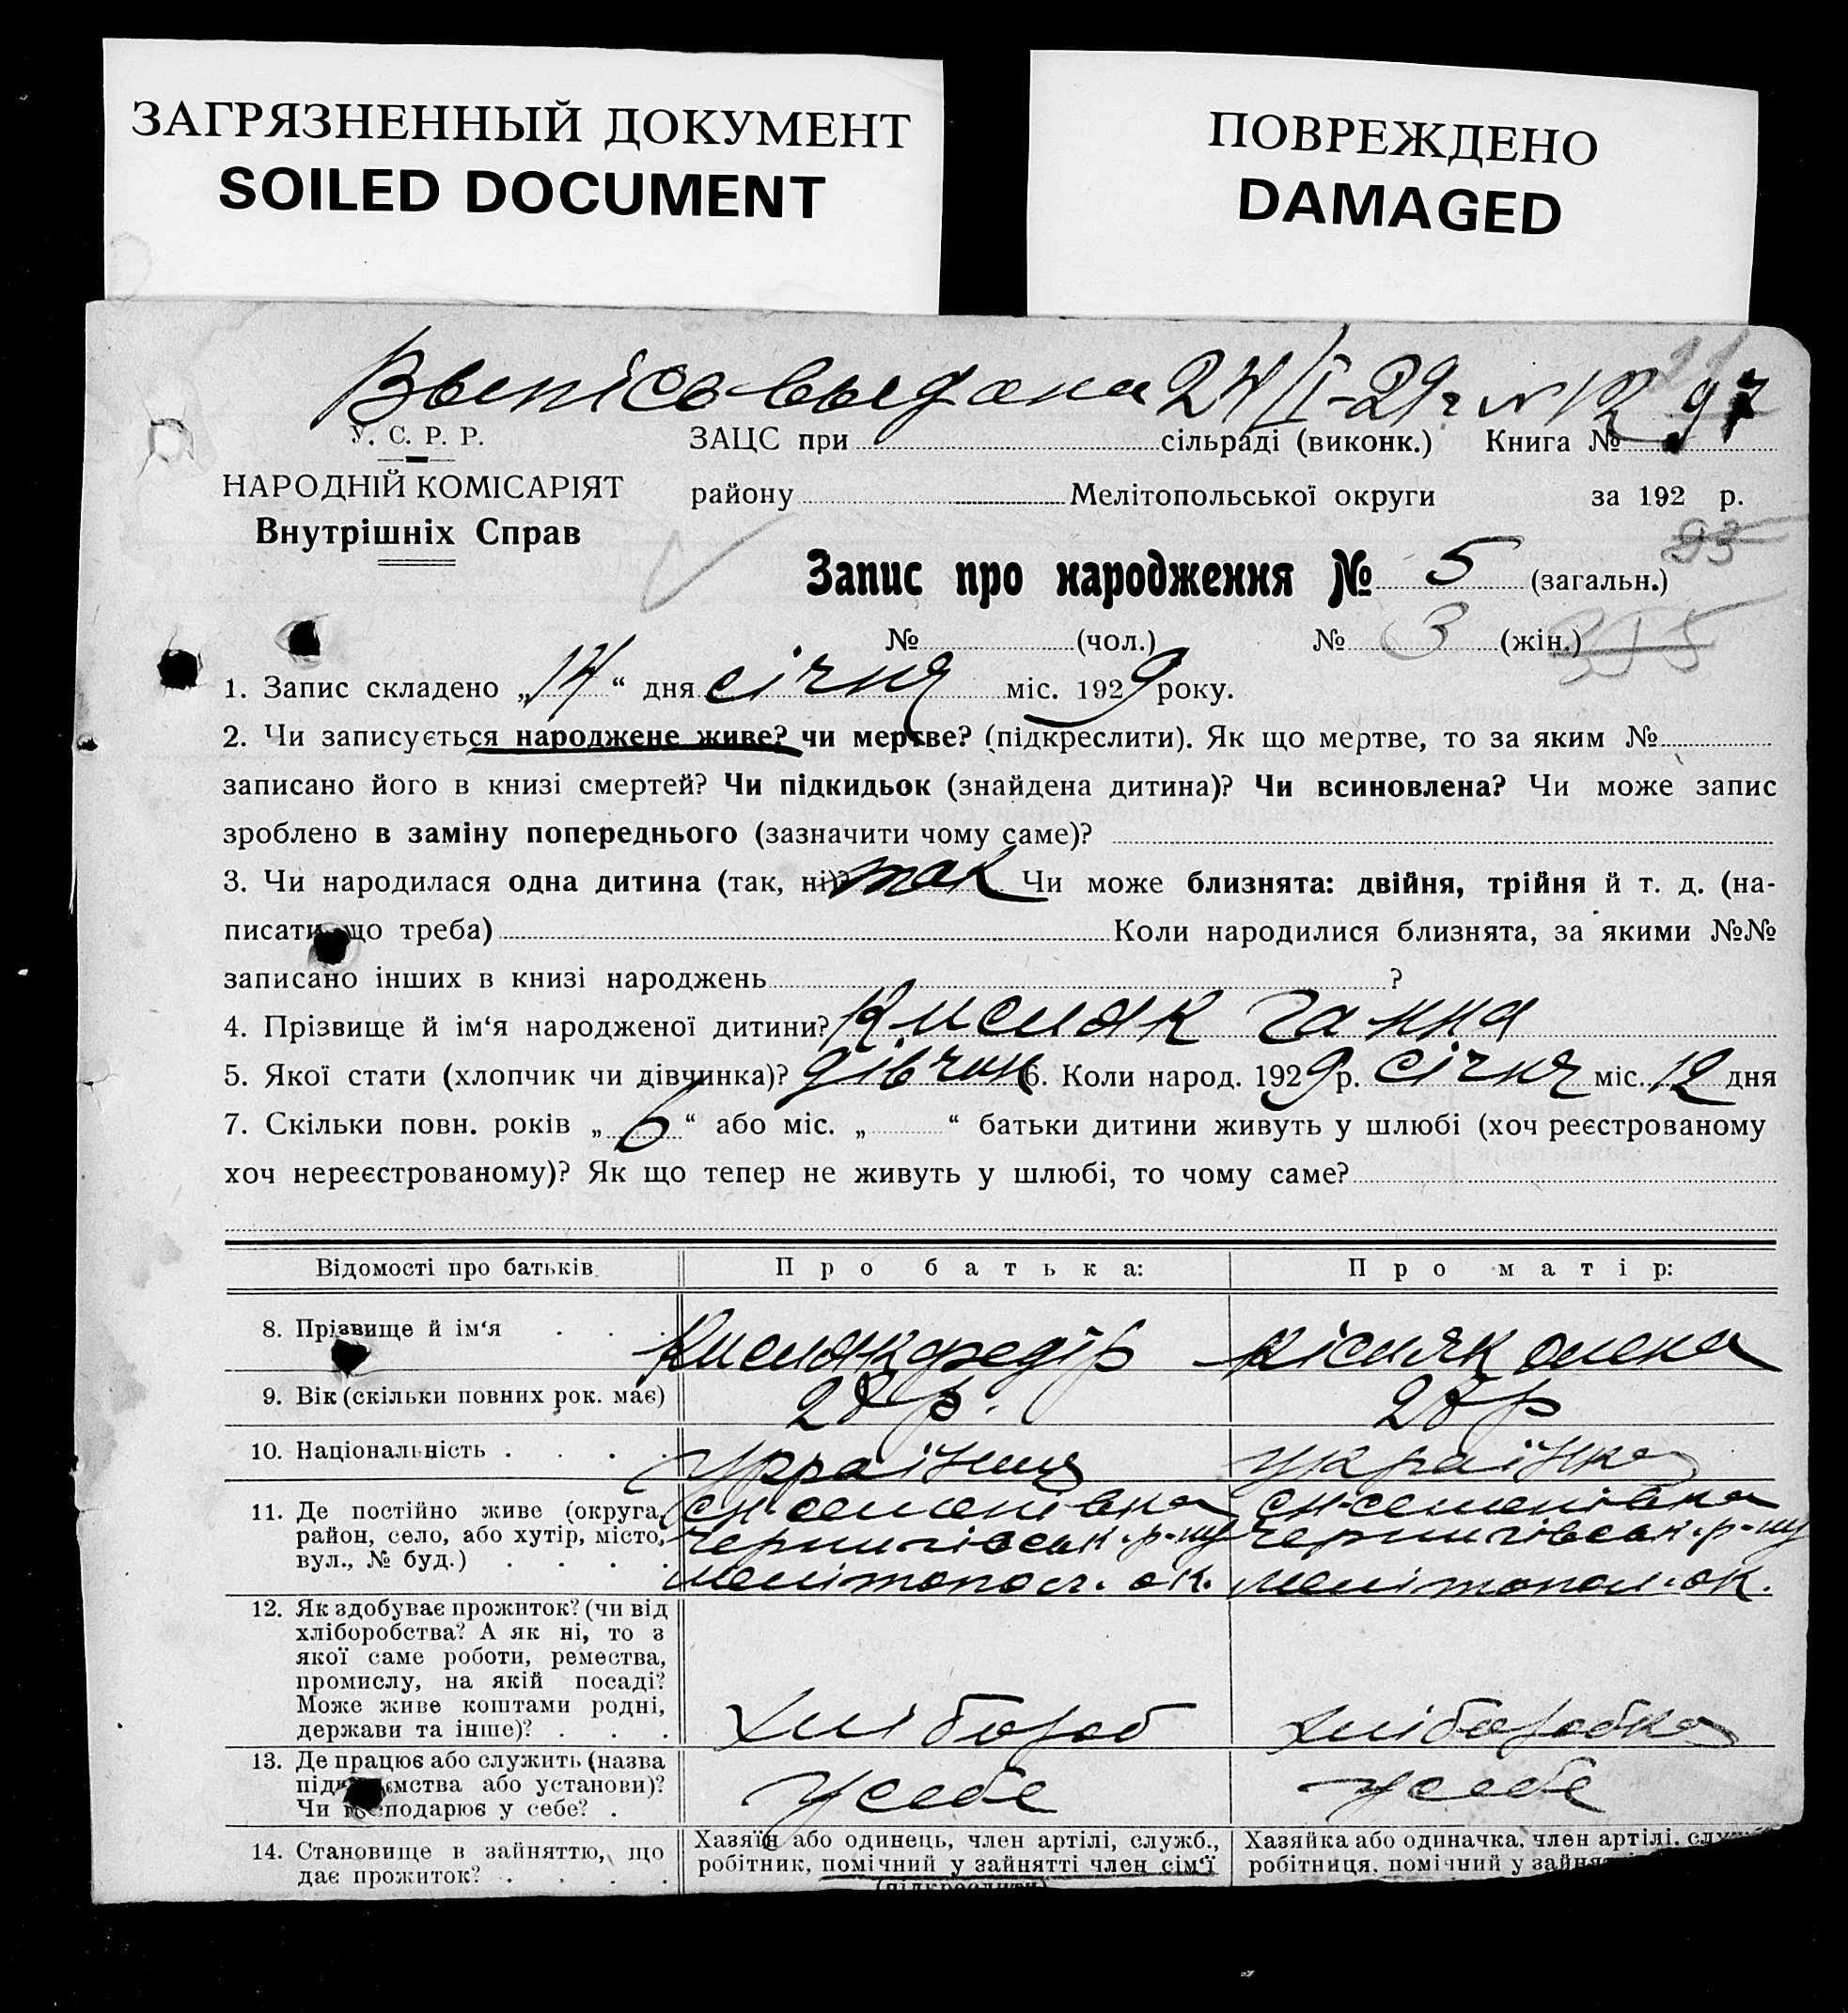 ЗАГРЯЗНЕННЫЙ ДОКУМЕНТ
SOILED DOCUMENT
ПОВРЕЖДЕНО
DAMAGED
Выпісь выдана 24/I-29г № 12 97
У. С. Р. Р.
ЗАЦС при сільраді (виконк.) Книга №
НАРОДНІЙ КОМІСАРІЯТ
району Мелітопольської округи за 192 р.
Внутрішніх Справ
93
Запис про народження № 5 (загальн.)
№ (чол.) № 3 (жін.)
1. Запис складено „14“ дня січня міс. 1929 року.
2. Чи записується народжене живе? чи мертве? (підкреслити). Як що мертве, то за яким №
записано його в книзі смертей? Чи підкидьок (знайдена дитина)? Чи всиновлена? Чи може запис
зроблено в заміну попереднього (зазначити чому саме)?
3. Чи народилася одна дитина (так, ні)? так Чи може близнята: двійня, трійня й т. д. (на-
писати що треба) Коли народилися близнята, за якими №№
записано інших в книзі народжень ?
4. Прізвище й ім‘я народженої дитини? Кисляк Ганна
5. Якої стати (хлопчик чи дівчинка)? дівчин 6. Коли народ. 1929 р. січня міс. 12 дня
7. Скільки повн. років „6“ або міс. „ “ батьки дитини живуть у шлюбі (хоч реєстрованому
хоч нереєстрованому)? Як що тепер не живуть у шлюбі, то чому саме?
Відомості про батьків Про батька: Про матір:
8. Прізвище й ім‘я Кисляк Федір Кісляк Олена
9. Вік (скільки повних рок. має)
10. Національність Українця Українка
11. Де постійно живе (округа, район, село, або хутір, місто, вул., № буд.)
сн-семенівка Чернигівськ. р-ну Мелітопол. ок.
сн-семенівка Чернигівськ. р-ну Мелітопол. ок.
12. Як здобуває прожиток? (чи від
хліборобства? А як ні, то з
якої саме роботи, ремества,
промислу, на якій посаді?
Може живе коштами родні,
держави та інше)? Хлібороб хліборобка
13. Де працює або служить (назва
підприємства або установи)?
Чи господарює у себе? У себе у себе
14. Становище в зайняттю, що
дає прожиток?
Хазяїн або одинець, член артілі, служб.,
робітник, помічний у зайнятті член сім‘ї
(підкреслити)
Хазяйка або одиначка, член артілі,
робітниця, помічний у